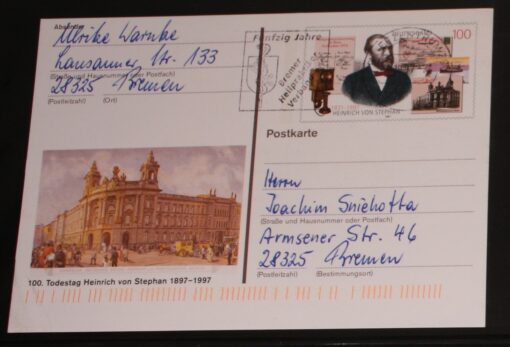 Absender
Ulrike Warnke
Lausanner Str. 133
(Straße und Hausnummer oder Postfach)
28325 Bremen
(Postleitzahl) (Ort)
Fünfzig Jahre
Bremer
Heilpraktiker
DEUTSCHLAND
100
1831-1897
HEINRICH VON STEPHAN
Postkarte
Herrn
Joachim Sniehotta
(Straße und Hausnummer oder Postfach)
Armsener Str. 46
28325 Bremen
(Postleitzahl) (Bestimmungsort)
100. Todestag Heinrich von Stephan 1897–1997